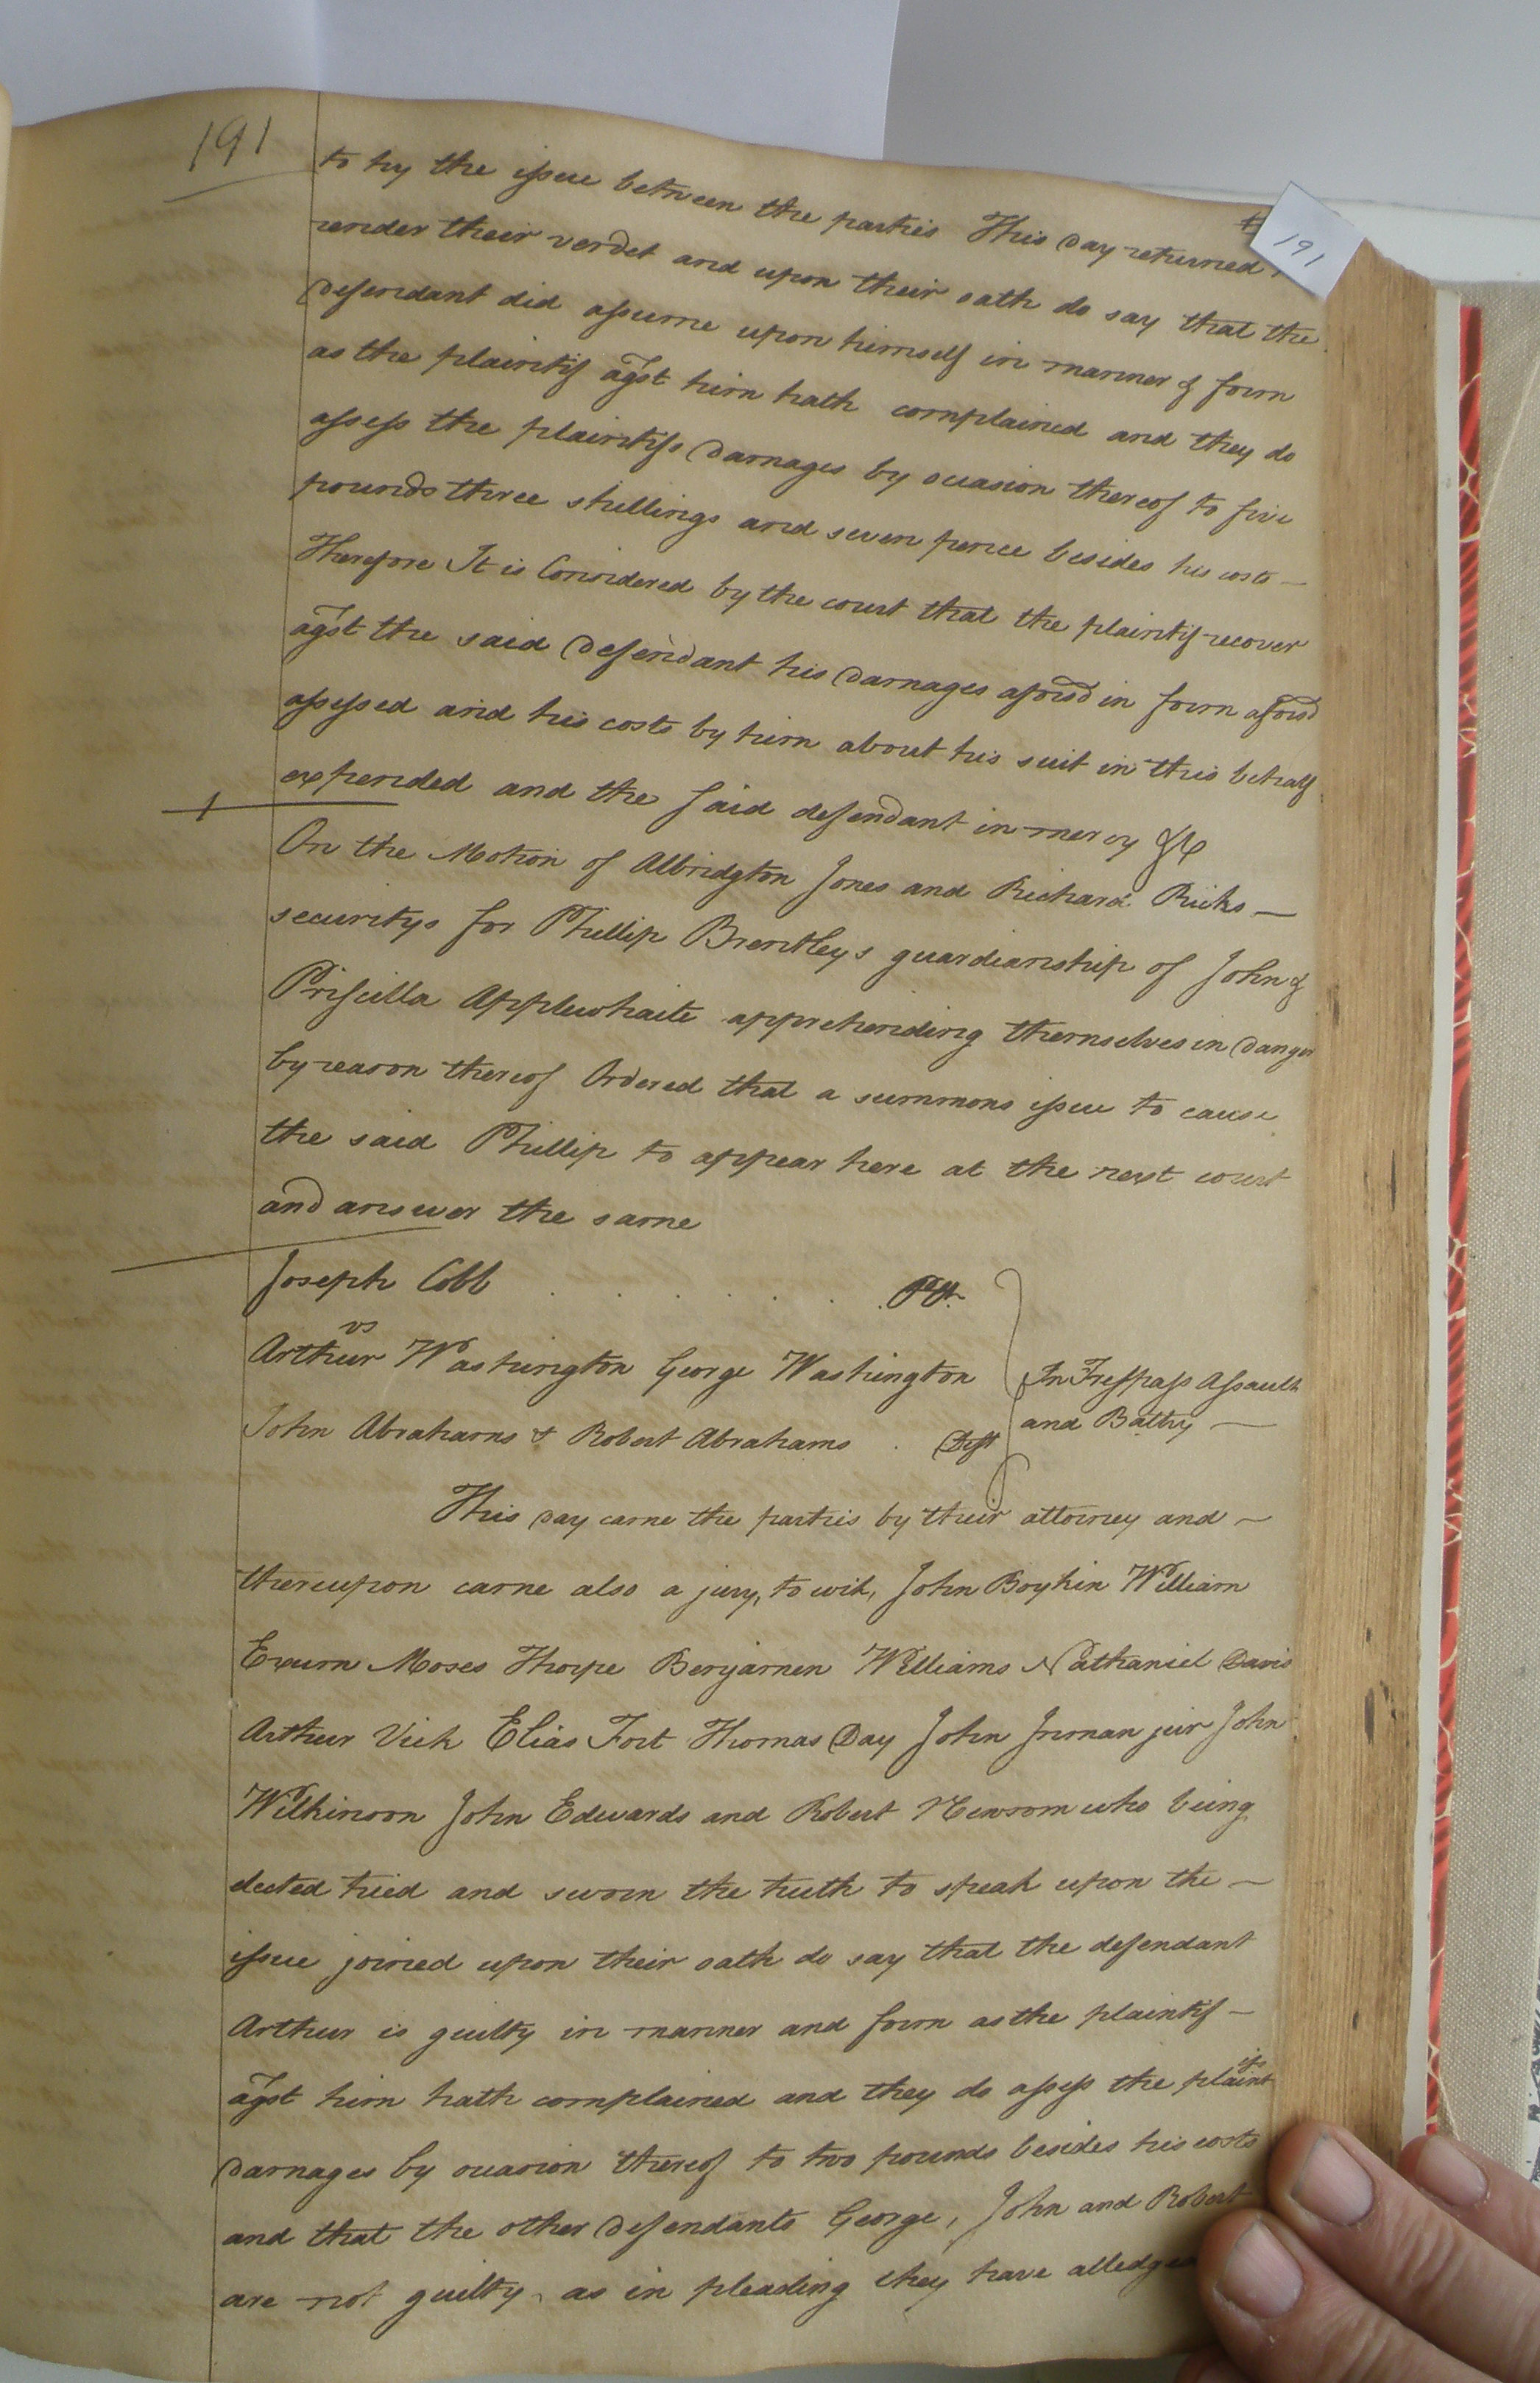 191
to try the issue between the parties This Day returned
191
render their verdct and upon their oath do say that the
Defendant did assume upon himself in manner & form
as the plaintif agst him hath complained and they do
assess the plaintifs Damages by occasion thereof to five
pounds three shillings and seven pence besides his costs —
Therefore It is Considered by the court that the plaintif recover
agst the said Defendant his Damages aforsd in form aforsd
assessed and his costs by him about his suit in this behalf
expended and the said defendant in mercy &c
On the Motion of Albridgton Jones and Richard Ricks —
securitys for Phillip Brentleys guardianship of John &
Priscilla Applewhaite apprehending themselves in Danger
by reason thereof Ordered that a summons issue to cause
the said Phillip to appear here at the next court
and answer the same
Joseph Cobb . . . . . . Plt.
vs
Arthur Washington George Washington
In Trespass Assault
John Abrahams & Robert Abrahams . Deft
and Battry —
This Day came the parties by their attorney and —
thereupon came also a jury, to wit, John Boykin William
Exum Moses Thorpe Benjamen Williams Nathaniel Davis
Arthur Vick Elias Fort Thomas Day John Inman jur John
Wilkinson John Edwards and Robert Newsom who being
elected tried and sworn the truth to speak upon the —
issue joined upon their oath do say that the defendant
Arthur is guilty in manner and form as the plaintif —
agst him hath complained and they do assess the plaintifs
Damages by occasion thereof to two pounds besides his costs
and that the other Defendants George, John and Robert
are not guilty, as in pleading they have alledged